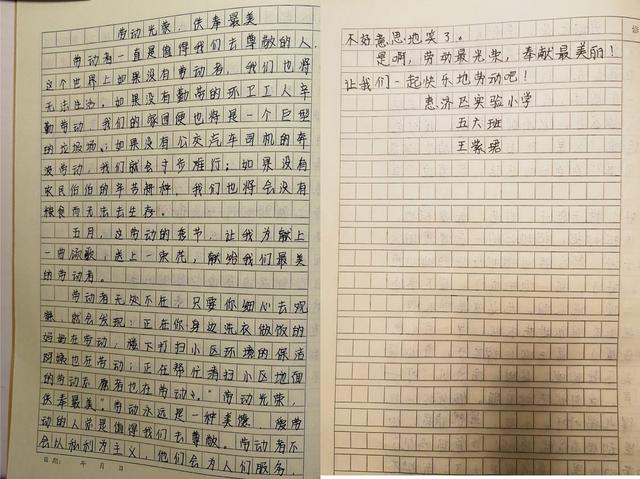 劳动光荣,供奉最美
劳动者一直是值得我们去尊敬的人,
这个世界上如果没有劳动者,我们也将
无法生活。如果没有勤劳的环卫工人辛
勤劳动,我们的家园便也将是一个巨型
的垃圾场;如果没有公交汽车司机的奔
波劳动,我们就会寸步难行;如果没有
农民伯伯的辛苦耕种,我们也将会没有
粮食而无法去生存。
五月,这劳动的季节,让我为献上
一曲颂歌,送上一束花,献给我们最美
的劳动者。
劳动者无处不在,只要你细心去观
察,就会发现:正在你身边洗衣做饭的
妈妈在劳动;楼下打扫小区环境的保洁
阿姨也在劳动;正在帮忙清扫小区地面
的劳动志愿者也在劳动。"劳动光荣,
供奉最美"劳动永远是一种美德,
动的人总是值得我们去尊敬。劳动者不
会以私利为主义,他们会为人们服务,
日期: 年 月 日
不好意思地笑了。
是啊,劳动最光荣,奉献最美丽!
让我们一起快乐地劳动吧!
惠济区实验小学
五六班
王紫珺